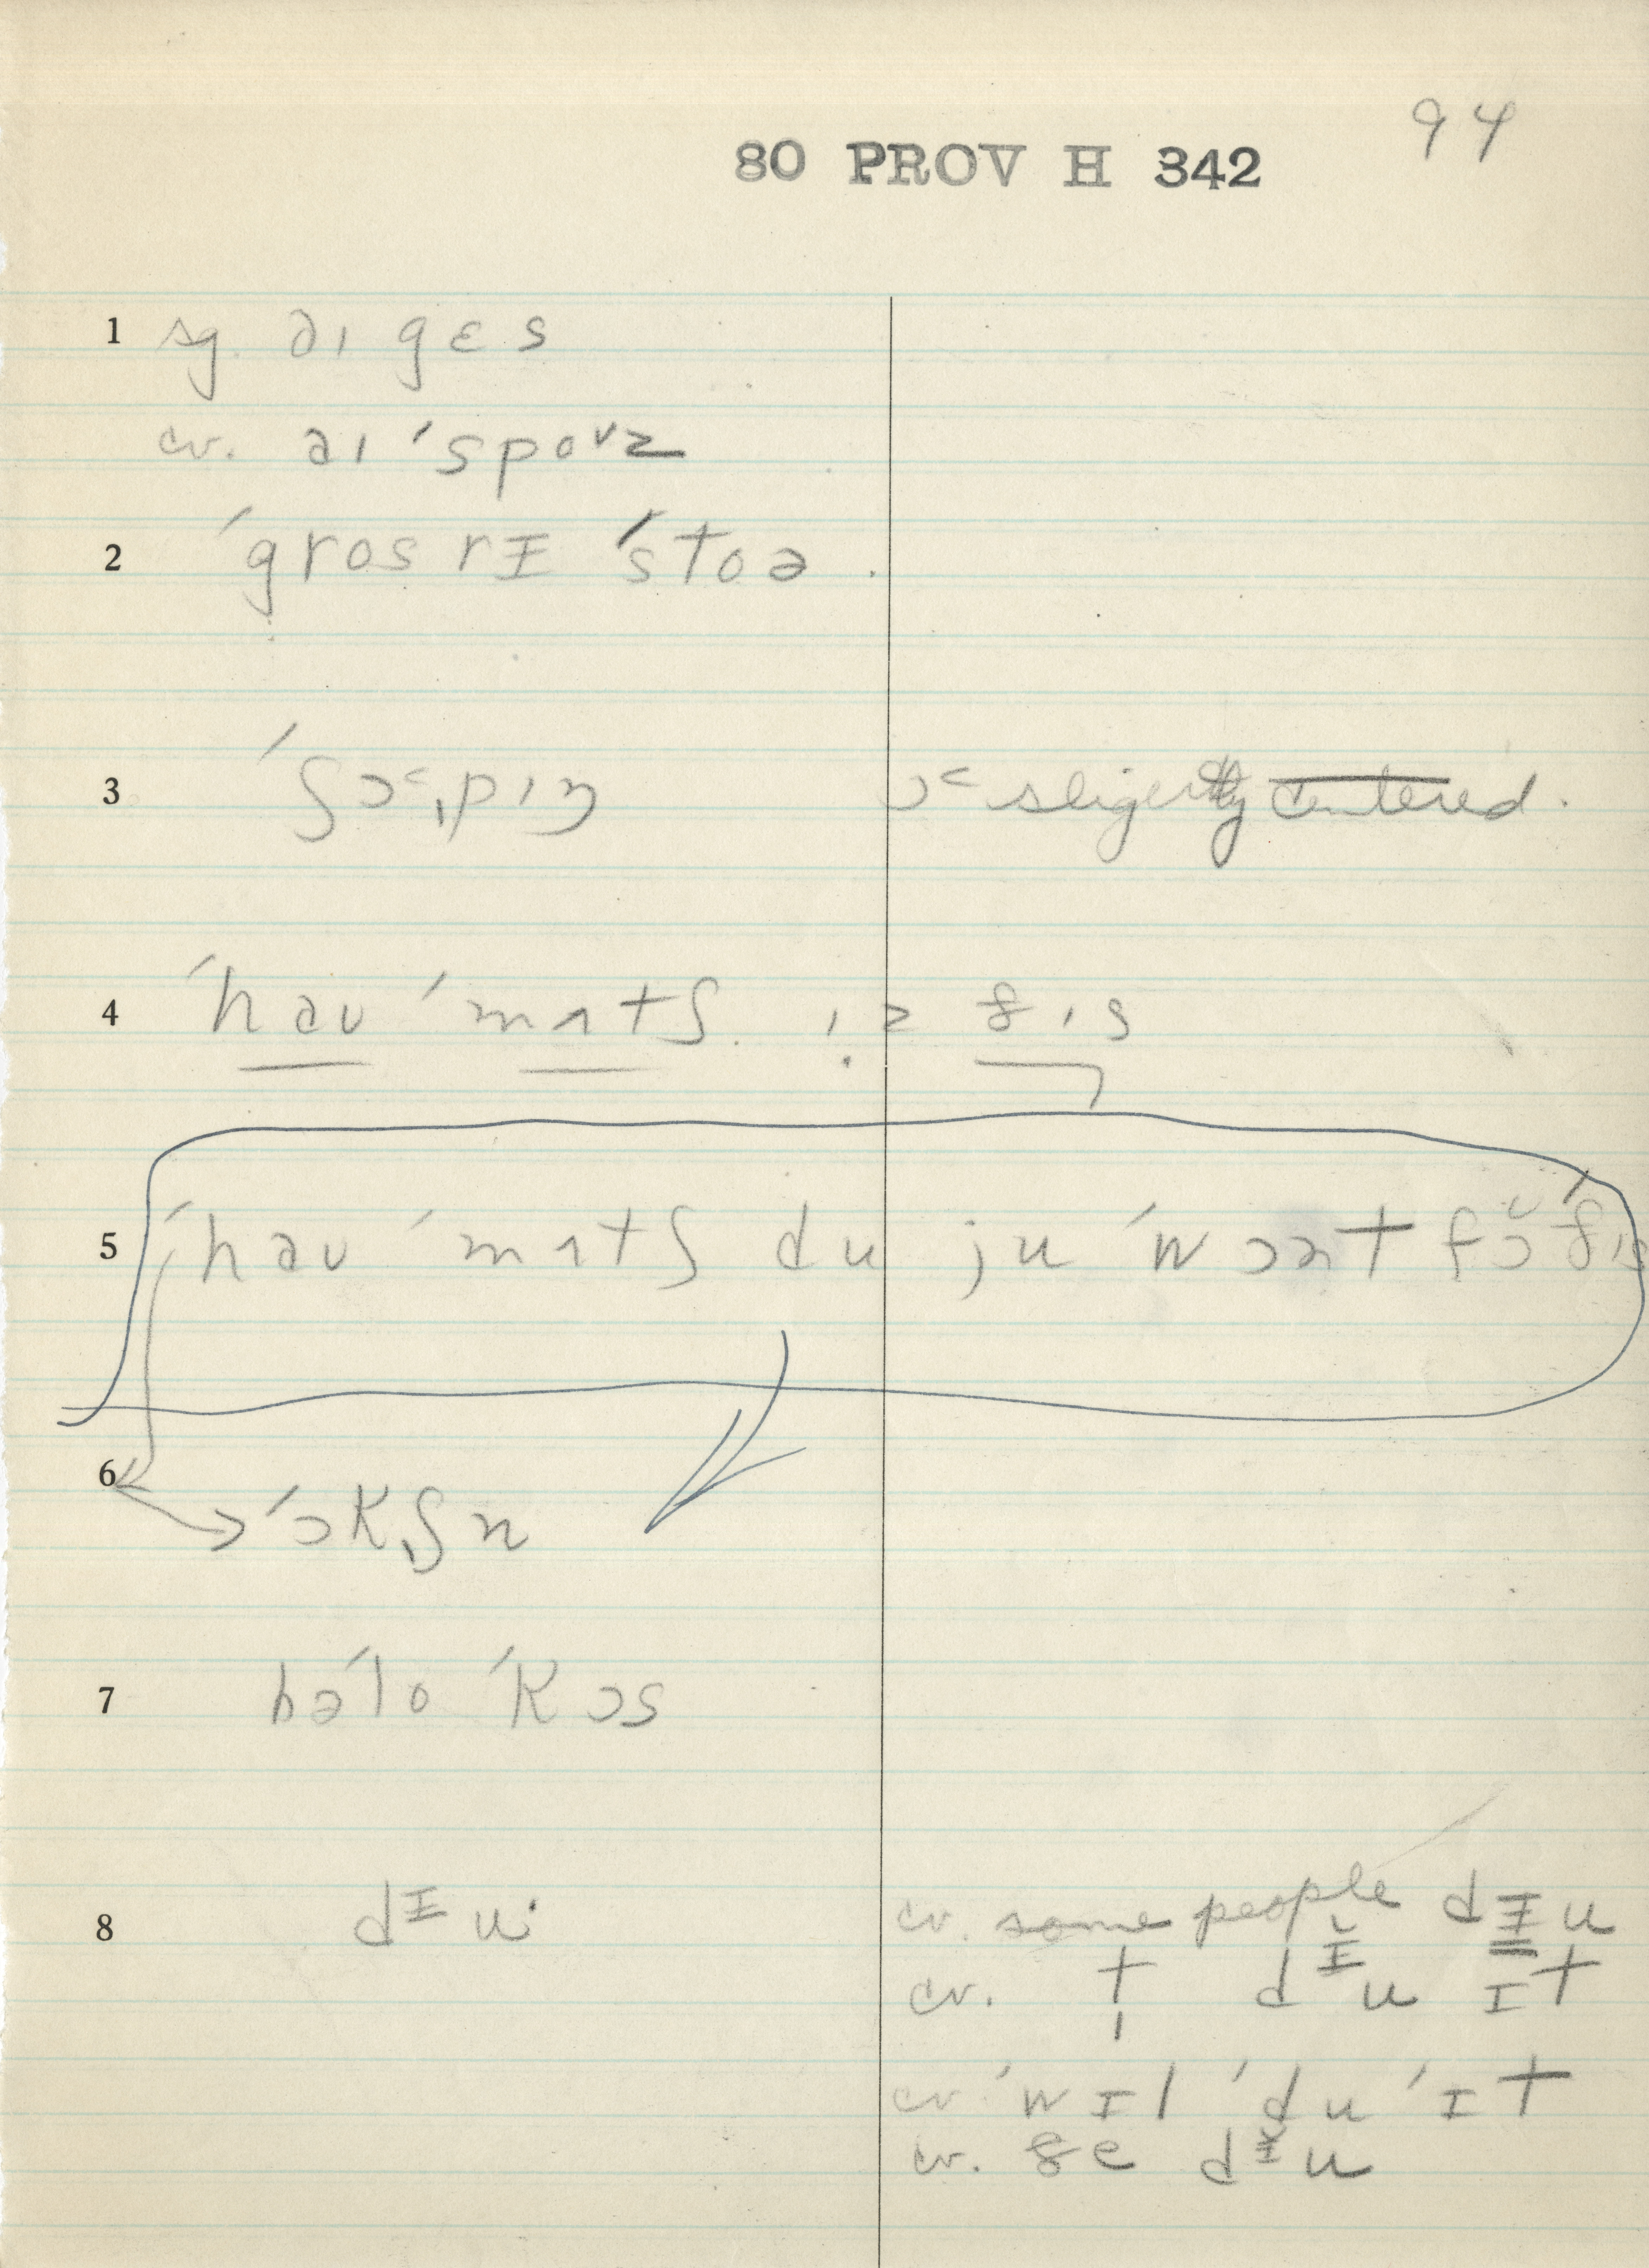 94
80 PROV H 342
1 sg. aɪ gɛs
cv. aɪ ˈspoᴜz
2 ˈgrosrɪ ˈstoə
3 ˈʃɔ˂ˌpɪŋ ɔ˂ slightly centered.
4 ˈhaᴜ ˈmʌtʃ ɪz ðɪs
5 ˈhaᴜ ˈmʌtʃ du ju ˈwɔnt fɔ̆ ˈðɪs
6 ˈɔkˌʃn
7 bəˈlo ˈkɔs
8 dᵻu· cv. some people dᵻu
cv. t̩ dᵻ̆u ɪt
cv ˈwɪl ˈdu ˈɪt
cv. ðe dᵻ̆u